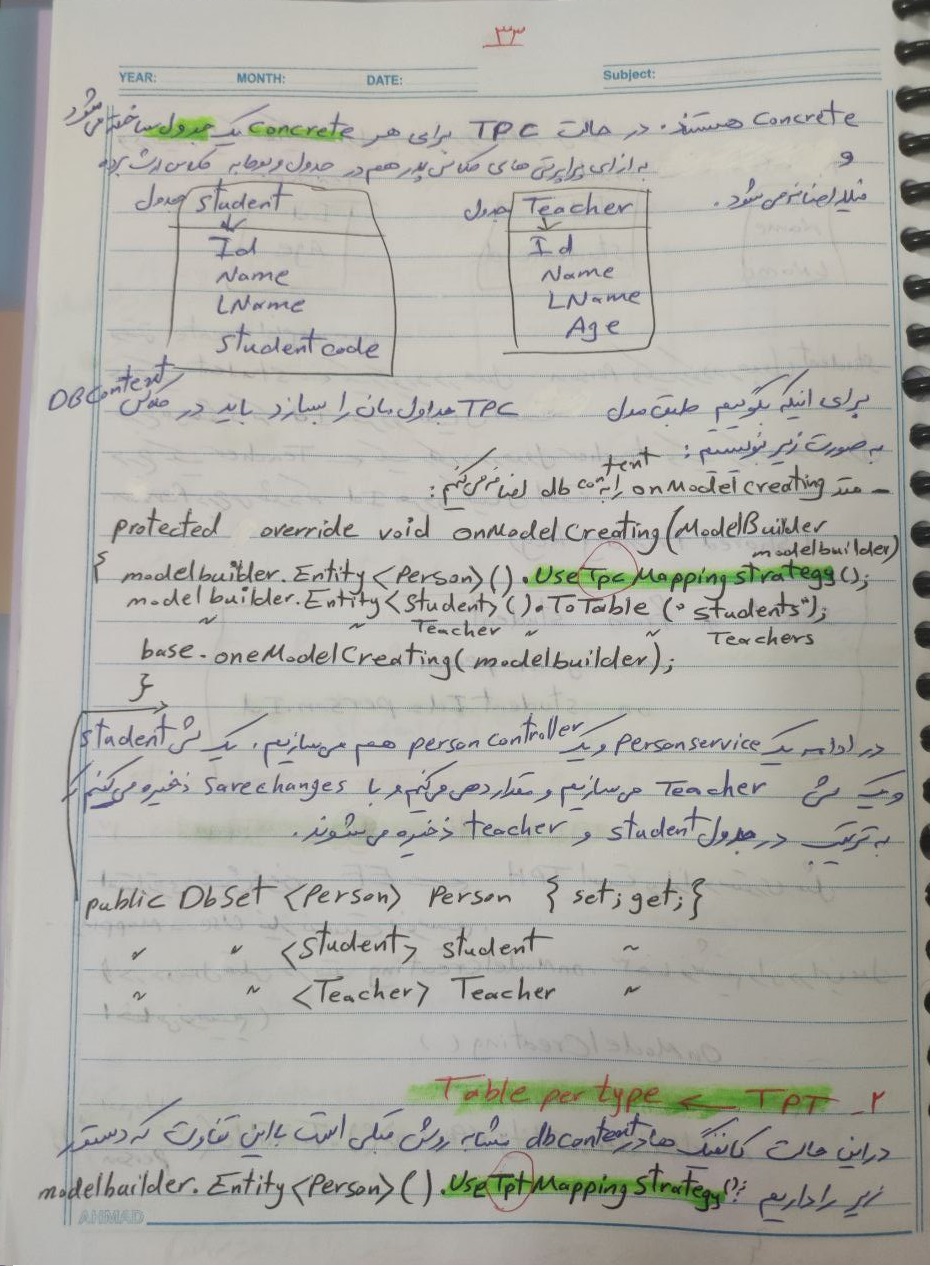 ۳۳
YEAR: MONTH: DATE: Subject:
Concrete هستند. در حالت TPC برای هر Concrete یک جدول ساخته می‌شود
و
به ازای پراپرتی های کلاس پدر هم در جدول مربوط به کلاس ارث برده
فیلد اضافه می شود.
جدول Student
Id
Name
LName
Student code
جدول Teacher
Id
Name
LName
Age
برای اینکه بگوییم طبق مدل TPC جداول مان را بسازد باید در کلاس DBContext
به صورت زیر بنویسیم:
- متد onModelcreating را به db context اضافه می کنیم:
protected override void onModelCreating(ModelBuilder modelbuilder)
{ modelbuilder.Entity<Person>().UseTpcMappingstrategy();
model builder.Entity<Student>().ToTable("students");
~ ~ Teacher ~ ~ Teachers
base.oneModelCreating(modelbuilder);
}
در ادامه یک Personservice و یک person controller هم می سازیم. یک شی student
و یک شی Teacher می سازیم و مقداردهی می کنیم و با Savechanges ذخیره می کنیم
به ترتیب در جدول student و teacher ذخیره می شوند.
public DbSet <Person> Person { set; get; }
〃 〃 <Student> student ~
~ 〃 <Teacher> Teacher ~
۲- TPT ← Table per type
در این حالت کانفیگ ها در dbcontext مشابه روش قبلی است با این تفاوت که دستور
زیر را داریم modelbailder.Entity<Person>().UseTptMappingStrategy();
AHMAD